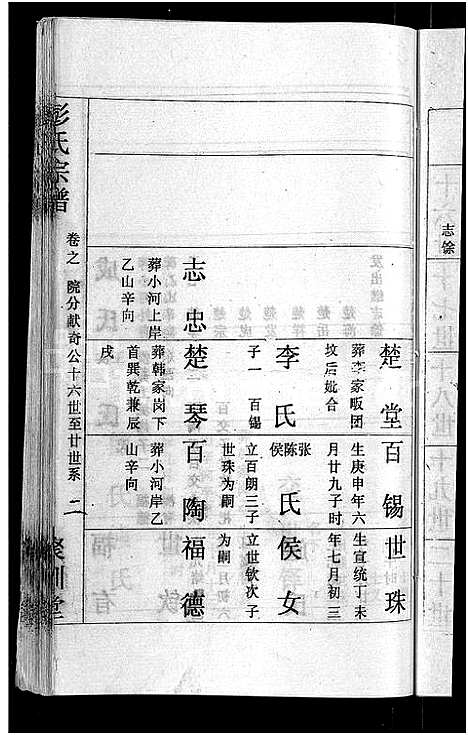 志馀
楚堂
葬李家畈团
坟后妣合
李氏
子一 百锡
百锡
生庚申年六
月廿九子时
张
陈氏
侯
立百朗三子
世珠为嗣
世珠
生宣统丁未
年七月初三
侯女
立世钦次子
为嗣
志忠
葬小河上岸
乙山辛向
楚琴
葬韩家岗下
首巽乾兼辰
戌
百陶
葬小河岸乙
山辛向
福德
彭氏宗谱
卷之 院分献奇公十六世至廿世系 二